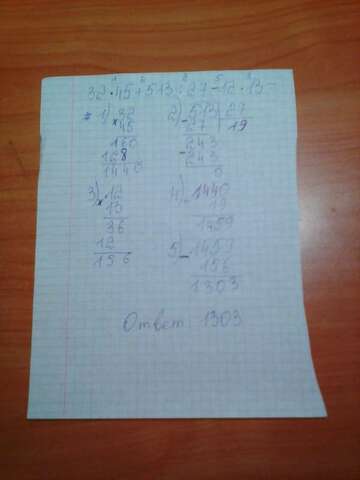 32·45+513:27-12·13=
1) 32
×45
160
128
1440
2) 513 | 27
- 27 | 19
243
- 243
0
3) ×12
13
36
12
156
4) 1440
19
1459
5) - 1459
156
1303
Ответ: 1303